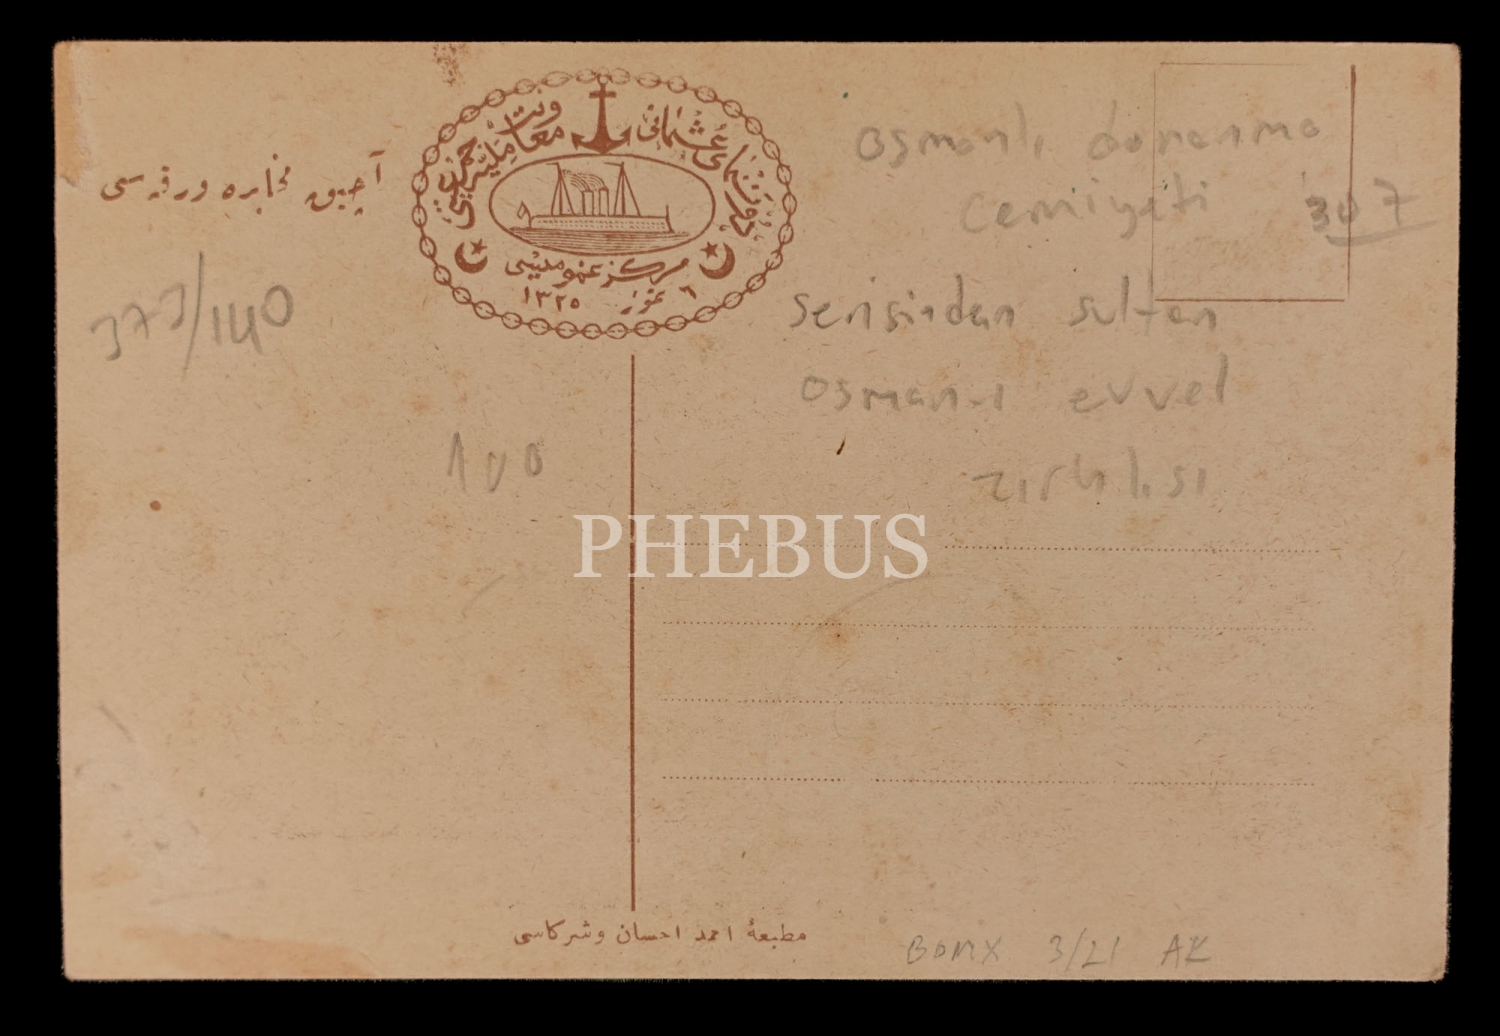 آچیق مخابره ورقه سی
دوننمای عثمانی
معاونت ملیه جمعیتی
مرکز عمومیسی
٦ تموز ١٣٢٥
osmanlı donanma
cemiyeti 307
serisinden sultan
osman-ı evvel
zırhlısı
373/140
100
PHEBUS
مطبعهٔ احمد احسان وشرکاسی
BOMX 3/21 AK